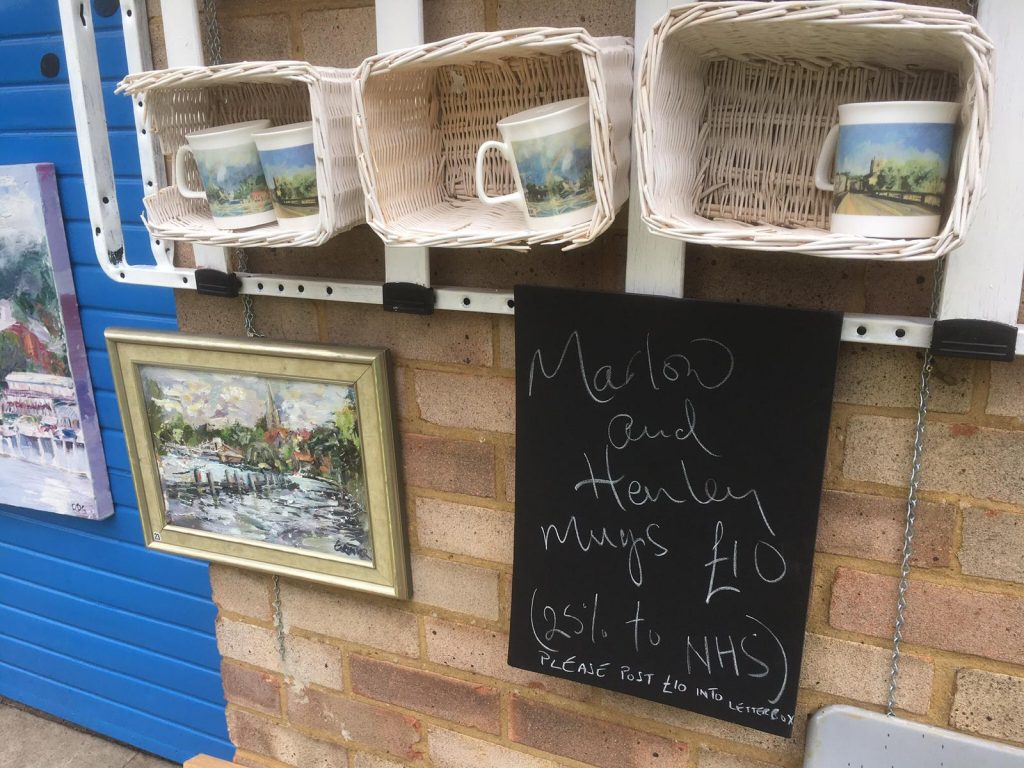 Marlow
and
Henley
mugs £10
(25% to
NHS)
PLEASE POST £10 INTO
LETTERBOX
23